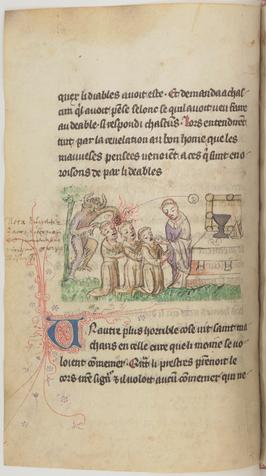 quer li diables auoit este. Et demanda achas
cun ql auoit pense selonc ce quil auoit ueu faire
au deable. si respondi chascuns. Lors entendirent
tuit par la reuelation au bon home que les
mauueses pensees uenoient a ces q sunt en o
roisons de par li deables
Un autre plus horrible cose uit saint ma
chaires en celle eure que li moine se uo
loient comenier. Qnt li prestres prenoit le
cors nre sign & il uoloit aucun comenier qui ne